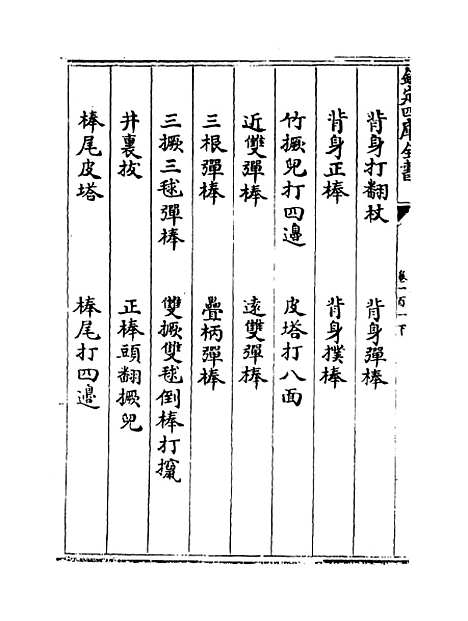 欽定四庫全書
卷一百一下
背身打翻杖　背身彈棒
背身正棒　背身撲棒
竹撅兜打四邉　皮塔打八面
近雙彈棒　逺雙彈棒
三根彈棒　疊柄彈棒
三撅三毬彈棒　雙撅雙毬倒棒打攛
井裏抜　正棒頭翻撅兜
棒尾皮塔　棒尾打四邉